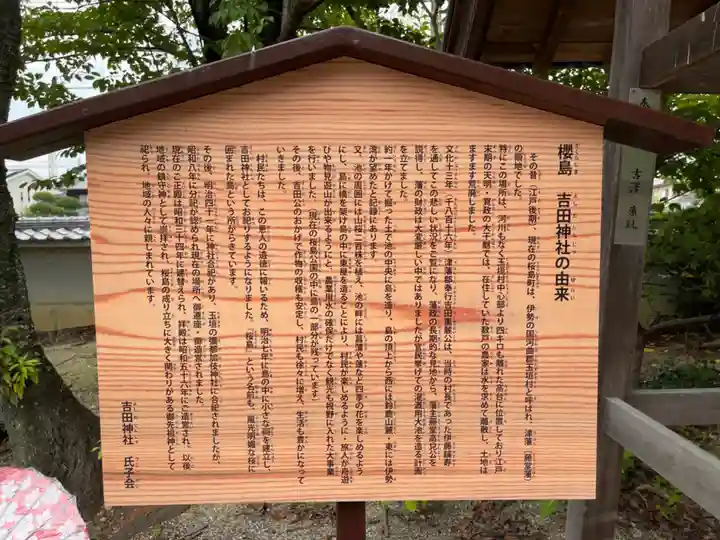 櫻島 吉田神社の由来
その昔(江戸後期)、現在の桜島町は、伊勢の國河曲郡玉垣村と呼ばれ、津藩(藤堂藩)
の領地でした。
特にこの場所は、河川もなく玉垣村中心部より四キロも離れた高台に位置しており江戸
末期の天明・寛政の大干魃では、在住していた数戸の農家は水を求めて離散し、土地は
ますます荒廃しました。
文化十三年(一千八百十六年)津藩郡奉行吉田重麿公は、当時の村長であった伊藤
を通してこの悲しい状況をご覧になり、藩政の長期的な見地から、藩主藤堂高兌公を
説得し、藩の財政は大変厳しい中ではありましたが農民救済の灌漑用大池を造る計画
を立てました。
約一年かけて掘った土で池の中央に島を造り、島の頂上から西には鈴鹿山脈・東には伊勢
湾が望めたと記録にあります。
又、池の周囲には山桜二百株を植え、池の畔には菖蒲や蓮など四季の花を楽しめるよう
にし、島に橋を架け島の中に東屋を造ることにより、村民が楽しめるように・旅人が舟遊
びや物見遊山が出来るようにと、農業用水の確保だけでなく観光も視野に入れた大事業
を行いました。(現在の桜島公園の中に島の一部分が残っています)
その後、吉田公のおかげで作物の収穫も安定し、村民も徐々に増え、生活も豊かになって
いきました。
村民たちは、この恩人の遺徳に報いるため、明治七年に島の中に小さな祠を建立し、
吉田神社としてお祀りするようになりました。「桜島」という名前も、風光明媚な桜に
囲まれた島という所からきています。
その後、明治四十一年に神社合祀があり、玉垣の彌都加伎神社に合祀されましたが、
昭和八年に分祀が認められ現在の場所へ御遷座・御造営されました。
現在のご正殿は昭和三十四年に建替えられ、拝殿は昭和五十六年にご造営され、以後
地域の鎮守神として崇拝され、桜島の成り立ちに大きく関わりがある御先祖神として
祀られ、地域の人々に親しまれています。
吉田神社 氏子会